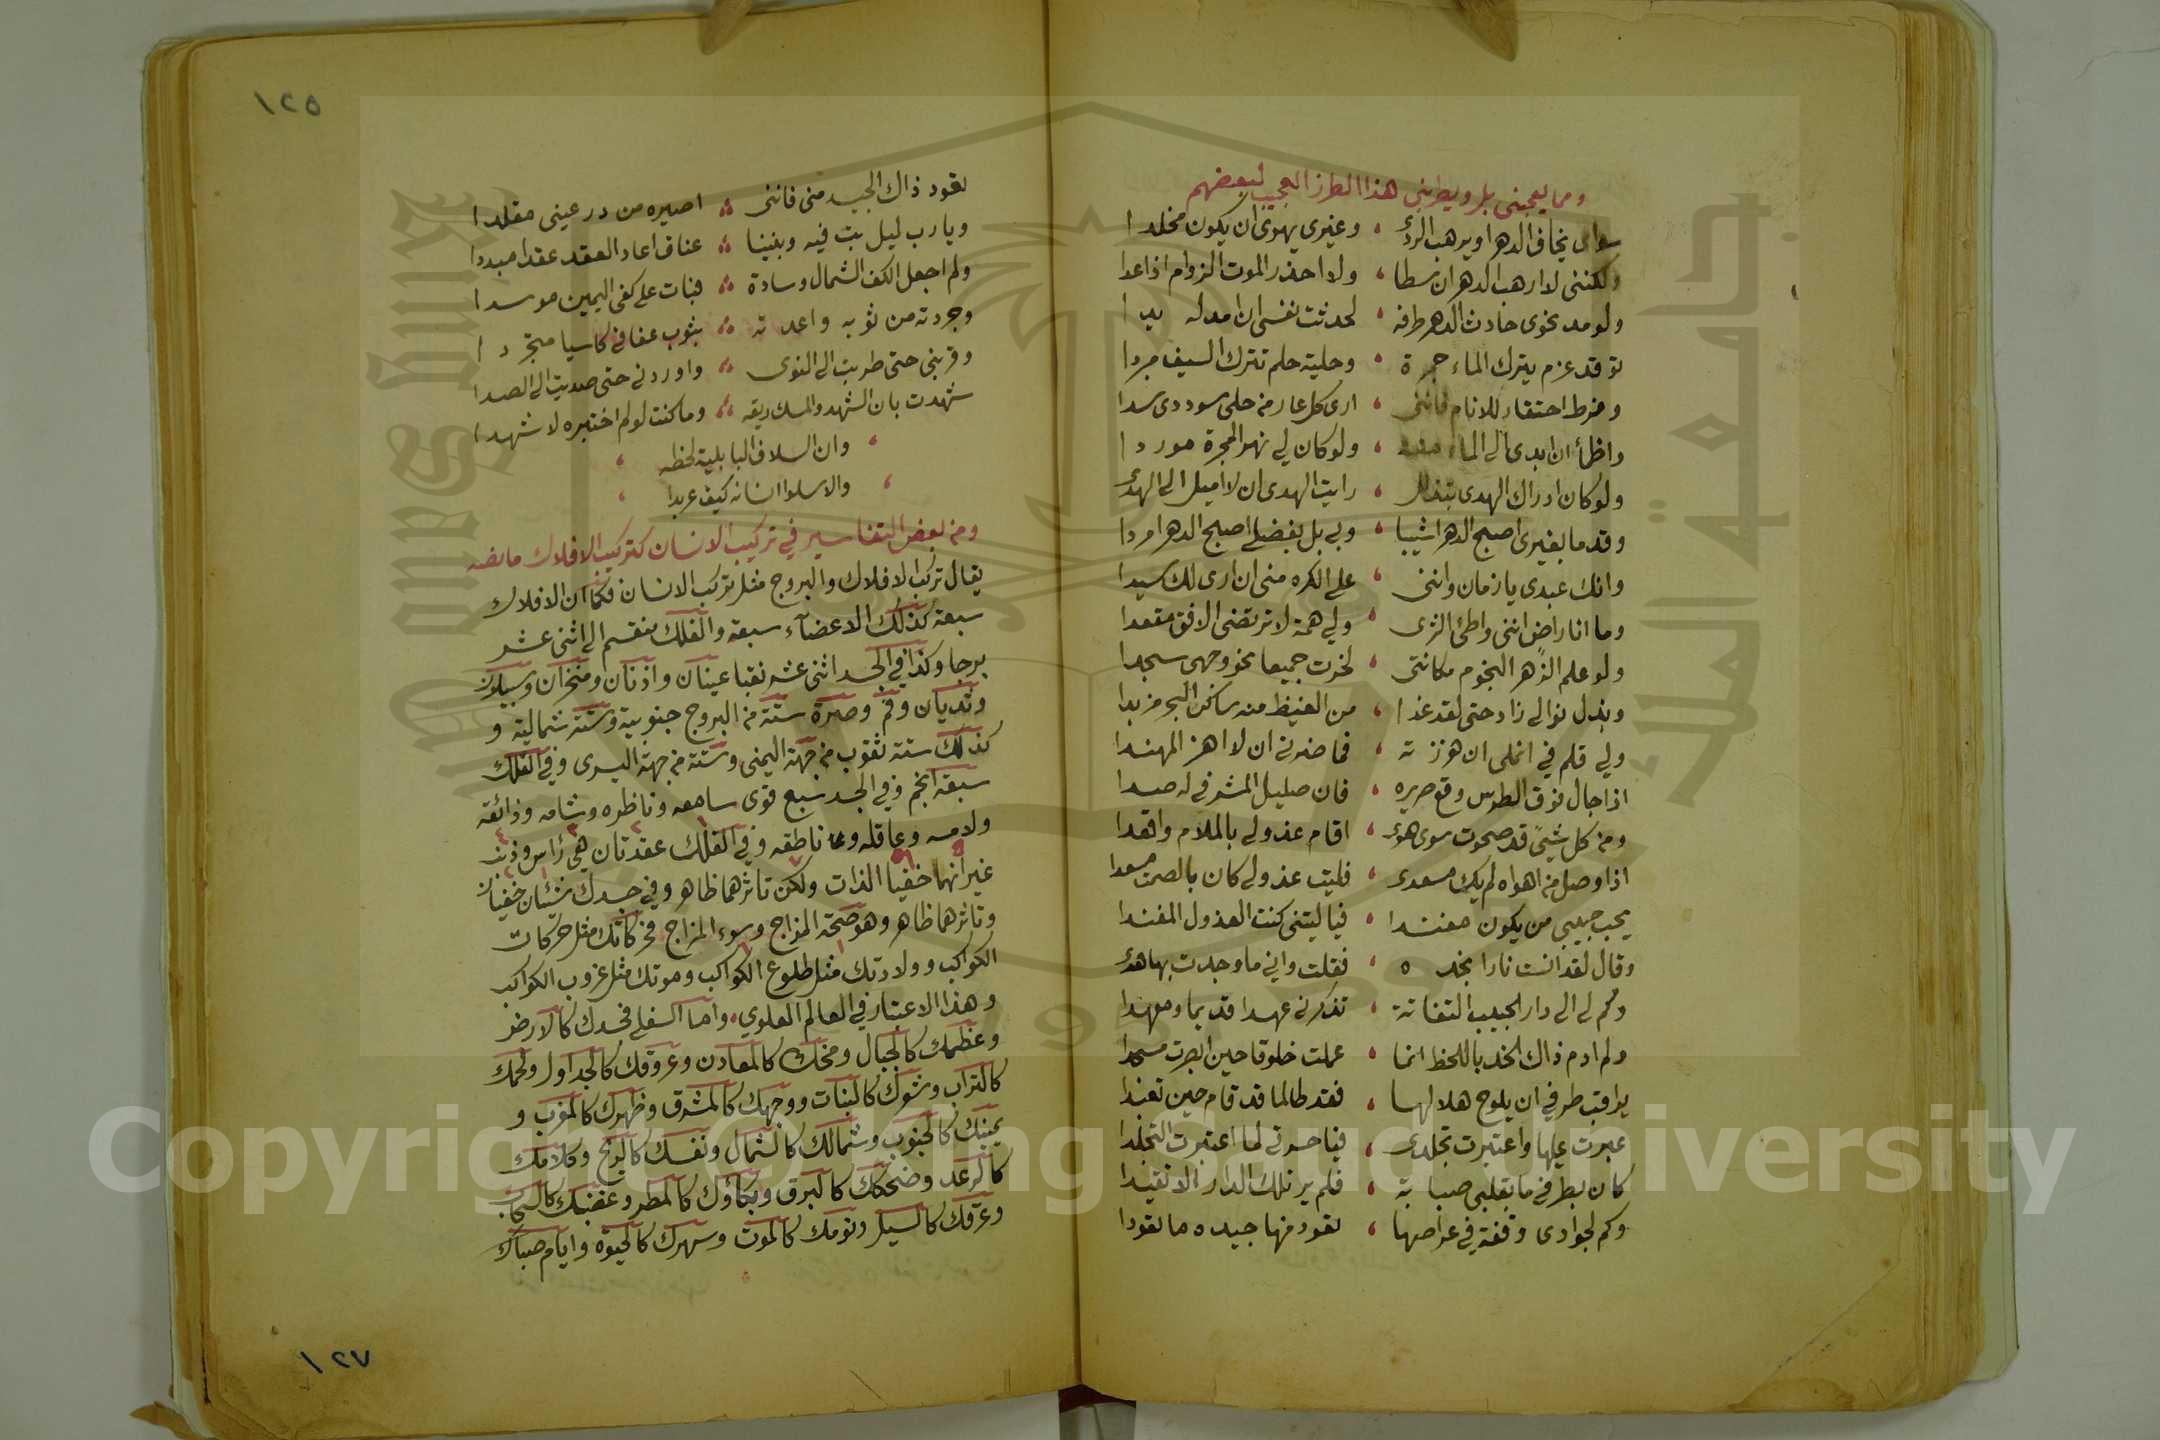 ومما يعجبني بل ويطربني هذا الطرز العجيب لبعضهم
سواى يخاف الدهر او يرهب الردى ، وغيرى يهوى ان يكون مخلدا
ولكننى لا ارهب الدهر ان سطا ، ولا احذر الموت الزوام اذا عدا
ولو مد نحوى حادث الدهر طرفه ، لحدثت نفسى ان امد له يدا
توقد عزم يترك الماء جمرة ، وحلية حلم تترك السيف مبردا
وفرط احتقار للانام فاننى ، ارى كل عار من حلى سوددى سدا
واظمأ ان ابدى الى الماء منة ، ولو كان لي نهر المجرة موردا
ولو كان ادراك الهدى بتذلل ، رايت الهدى ان لا اميل الى الهدى
وقدما بغيرى اصبح الدهر اشيبا ، وبي بل بفضلى اصبح الدهر امردا
وانك عبدى يا زمان واننى ، على الكره منى ان ارى لك سيدا
وما انا راض اننى واطئ الثرى ، ولي همة لا ترتضى الافق مقعدا
ولو علم الزهر النجوم مكانتى ، لخرت جميعا نحو وجهى سجدا
وبذل نوالى زاد حتى لقد غدا ، من الغيظ منه ساكن البحر مزبدا
ولي قلم في انملى ان هززته ، فما ضرني ان لا اهز المهندا
اذا جال فوق الطرس وقع صريره ، فان صليل المشرفي له صدا
ومن كل شيئ قد صحوت سوى هوى ، اقام عذولي بالملام واقعدا
اذا وصل من اهواه لم يك مسعدى ، فليت عذولي كان بالصمت مسعدا
يحب حبيبي من يكون مفندا ، فيا ليتنى كنت العذول المفندا
وقال لقد انست نارا بخده ، فقلت واني ما وجدت بها هدى
وكم لي الى دار الحبيب التفاتة ، تذكرني عهدا قديما ومعهدا
ولم ادم ذاك الخد باللحظ انما ، عملت خلوقا حين ابصرت مسجدا
يراقب طرفي ان يلوح هلالها ، فقد طالما قد قام حين تعبدا
عبرت عليها واعتبرت تجلدى ، فيا حسرتي لما اعتبرت التجلدا
كان بطرفي ما بقلبي صبابة ، فلم ير تلك الدار الا تقيدا
وكم لجوادى وقفة في عراصها ، تعود منها جيده ما تعودا
١٢٥
تعود ذاك الجيد منى فاننى ؞ اصيره من در عينى مقلدا
ويا رب ليل بت فيه وبيننا ؞ عناق اعاد العقد عقدا مبددا
ولم اجعل الكف الشمال وسادة ؞ فبات على كفى اليمين موسدا
وجردته من ثوبه واعدته ؞ بثوب عفافي كاسيا متجردا
وقربنى حتى طربت الى النوى ؞ واوردني حتى صديت الى الصدا
شهدت بان الشهد والمسك ريقه ؞ وما كنت لو لم اختبره لاشهدا
، وان السلاف البابلية لحظه ،
، والا سلوا انسانه كيف عربدا ،
ومن بعض التفاسير في تركيب الانسان كتركيب الافلاك ما نصه
يقال تركب الافلاك والبروج مثل تركب الانسان فكما ان الافلاك
سبعة كذلك الاعضآء سبعة والفلك منقسم الى اثنى عشر
برجا وكذا في الجسد اثنى عشر نقبا عينان واذنان ومنخران وسبيلان
وثديان وفم وصرة ستة من البروج جنوبية وستة شمالية و
كذلك ستة نقوب من جهة اليمنى وستة من جهة اليسرى وفي الفلك
سبعة انجم وفي الجسد سبع قوى سامعه وناظره وشامه وذائقة
ولامسه وعاقله وناطقه وفي الفلك عقدتان هي رأس وذنب
غير انهما خفيا الذات ولكن تاثرهما ظاهر وفي جسدك شيئان خفيان
وتاثرهما ظاهر وهو صحة المزاج وسوء المزاج فحركاتك مثل حركات
الكواكب وولادتك مثل طلوع الكواكب وموتك مثل غروب الكواكب
وهذا الاعتبار في العالم العلوي، واما السفلى فجسدك كالارض
وعظمك كالجبال ومخك كالمعادن وعروقك كالجداول ولحمك
كالتراب وشعرك كالنبات ووجهك كالمشرق وظهرك كالمغرب و
يمينك كالجنوب وشمالك كالشمال ونفسك كالريح وكلامك
كالرعد وضحكك كالبرق وبكاؤك كالمطر وغضبك كالسحاب
وعرقك كالسيل ونومك كالموت وسهرك كالحيوة وايام صباك
١٢٧
جامعة الملك سعود
King Saud University
1957
Copyright © King Saud University